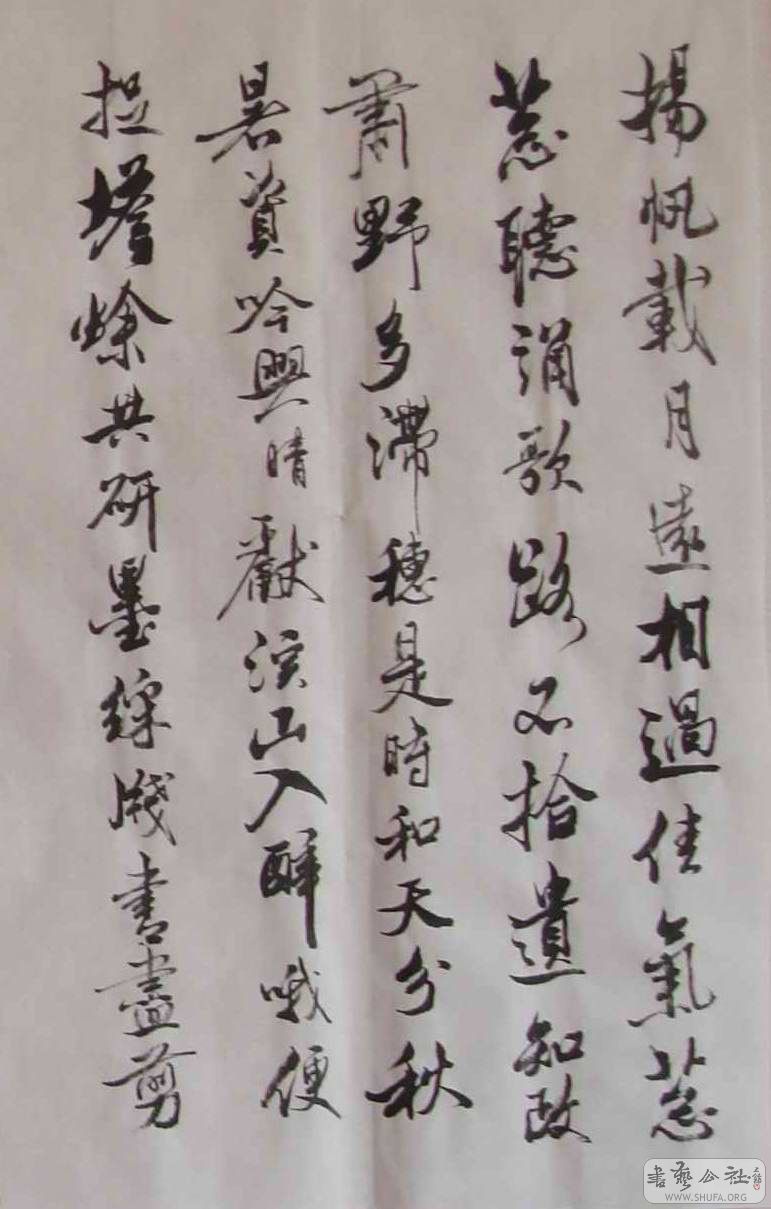 揚帆載月遠相過佳氣葱
葱聽誦歌路不拾遺知政
肅野多滯穗是時和天分秋
暑資吟興晴獻溪山入醉哦便
捉蟾蜍共研墨綵牋書盡剪
書藝公社
WWW.SHUFA.ORG